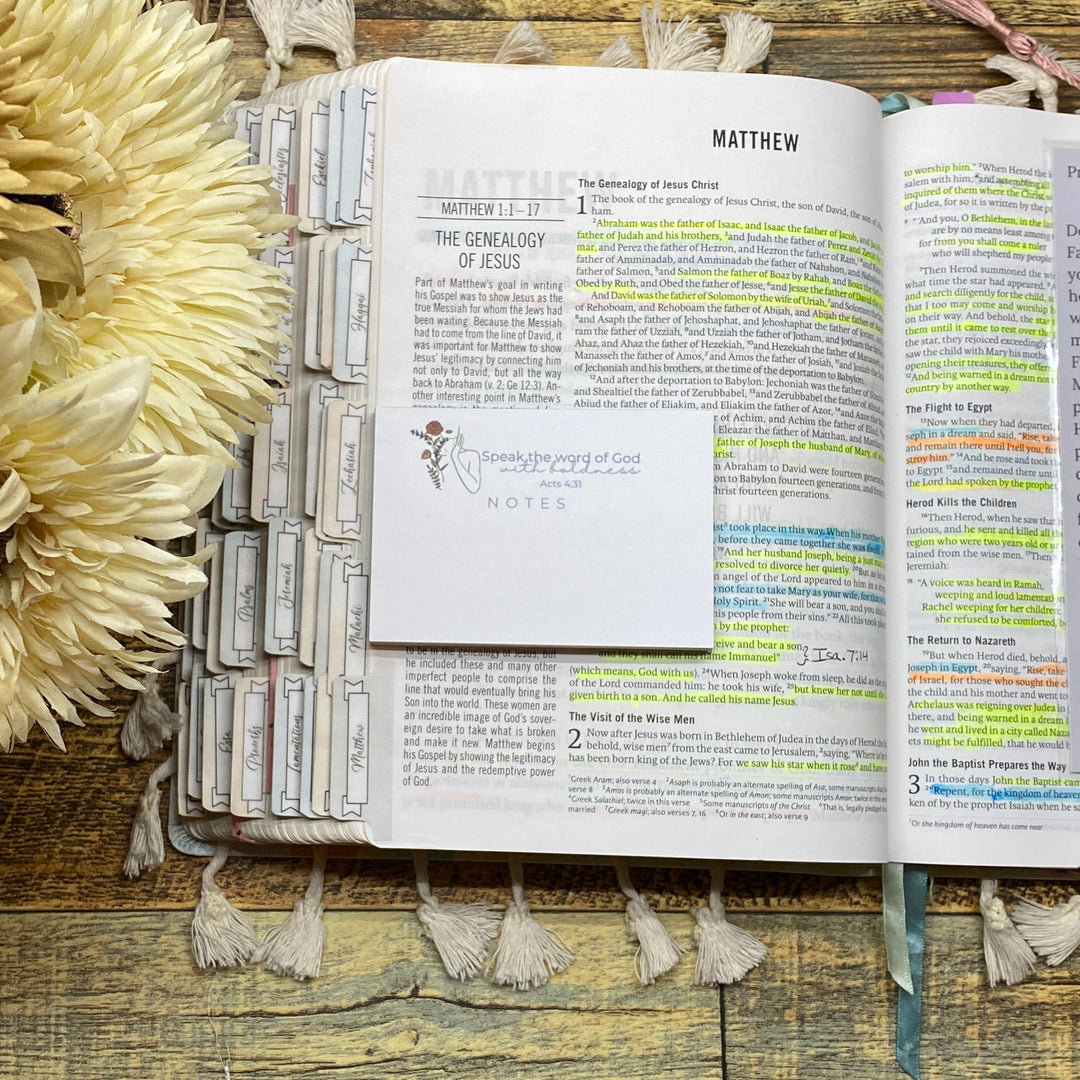 Ezekiel
Haggai
Isaiah
Zechariah
Psalms
Jeremiah
Malachi
Ezra
Proverbs
Lamentations
Matthew
MATTHEW
MATTHEW 1:1–17
THE GENEALOGY
OF JESUS
Part of Matthew's goal in writing
his Gospel was to show Jesus as the
true Messiah for whom the Jews had
been waiting. Because the Messiah
had to come from the line of David, it
was important for Matthew to show
Jesus' legitimacy by connecting him
not only to David, but all the way
back to Abraham (v. 2; Ge 12:3). An-
other interesting point in Matthew's
to be in the genealogy of Jesus, but
he included these and many other
imperfect people to comprise the
line that would eventually bring his
Son into the world. These women are
an incredible image of God's sover-
eign desire to take what is broken
and make it new. Matthew begins
his Gospel by showing the legitimacy
of Jesus and the redemptive power
of God.
The Genealogy of Jesus Christ
1 The book of the genealogy of Jesus Christ, the son of David, the son of
ham.
2Abraham was the father of Isaac, and Isaac the father of Jacob, and
father of Judah and his brothers, 3and Judah the father of Perez and Zerah
mar, and Perez the father of Hezron, and Hezron the father of Ram,
father of Amminadab, and Amminadab the father of Nahshon, and Nahshon
father of Salmon, 5and Salmon the father of Boaz by Rahab, and Boaz the
Obed by Ruth, and Obed the father of Jesse, 6and Jesse the father of David
And David was the father of Solomon by the wife of Uriah, 7and Solomon
of Rehoboam, and Rehoboam the father of Abijah, and Abijah the father of
8and Asaph the father of Jehoshaphat, and Jehoshaphat the father of
ram the father of Uzziah, 9and Uzziah the father of Jotham, and Jotham the father
Ahaz, and Ahaz the father of Hezekiah, 10and Hezekiah the father of
Manasseh the father of Amos, and Amos the father of Josiah, 11and Josiah the
of Jechoniah and his brothers, at the time of the deportation to Babylon.
12And after the deportation to Babylon: Jechoniah was the father of
and Shealtiel the father of Zerubbabel, 13and Zerubbabel the father of
Abiud the father of Eliakim, and Eliakim the father of Azor, 14and Azor the
r of Achim, and Achim the father of
Eleazar the father of Matthan, and Matthan
father of Joseph the husband of Mary, of
rist.
m Abraham to David were fourteen
on to Babylon fourteen generations, and
hrist fourteen generations.
ist5 took place in this way. When his mother
, before they came together she was
19And her husband Joseph, being a just man
resolved to divorce her quietly. 20But as
n angel of the Lord appeared to him in a
o not fear to take Mary as your wife, for that
Holy Spirit. 21She will bear a son, and you
his people from their sins." 22All this took
n by the prophet:
eive and bear a son,
and they shall call his name Immanuel"
Isa. 7:14
(which means, God with us). 24When Joseph woke from sleep, he did as the
of the Lord commanded him: he took his wife, 25but knew her not until she
given birth to a son. And he called his name Jesus.
The Visit of the Wise Men
2 Now after Jesus was born in Bethlehem of Judea in the days of Herod the
behold, wise men7 from the east came to Jerusalem, 2saying, "Where is
has been born king of the Jews? For we saw his star when it rose8 and have
1Greek Aram; also verse 4 2Asaph is probably an alternate spelling of Asa; some manuscripts
verse 8 3Amos is probably an alternate spelling of Amon; some manuscripts Amon; twice in this
4Greek Salathiel; twice in this verse 5Some manuscripts of the Christ 6That is, legally pledged
married 7Greek magi; also verses 7, 16 8Or in the east; also verse 9
Speak the word of God
with boldness
Acts 4:31
NOTES
to worship him." 3When Herod the
salem with him; 4and assembling all
inquired of them where the Christ
of Judea, for so it is written by the
6 "'And you, O Bethlehem, in the
are by no means least among
for from you shall come a ruler
who will shepherd my people
7Then Herod summoned the wise
what time the star had appeared.
and search diligently for the child,
that I too may come and worship
on their way. And behold, the star
them until it came to rest over the
the star, they rejoiced exceedingly
saw the child with Mary his mother
opening their treasures, they offered
12And being warned in a dream not
country by another way.
The Flight to Egypt
13Now when they had departed,
seph in a dream and said, "Rise, take
and remain there until I tell you, for
stroy him." 14And he rose and took
to Egypt 15and remained there until
the Lord had spoken by the prophet
Herod Kills the Children
16Then Herod, when he saw that
furious, and he sent and killed all
region who were two years old or
tained from the wise men. 17Then
Jeremiah:
18 "A voice was heard in Ramah,
weeping and loud lamentation
Rachel weeping for her children;
she refused to be comforted,
The Return to Nazareth
19But when Herod died, behold,
Joseph in Egypt, 20saying, "Rise, take
of Israel, for those who sought the
the child and his mother and went to
Archelaus was reigning over Judea in
there, and being warned in a dream
he went and lived in a city called
ets might be fulfilled, that he would
John the Baptist Prepares the Way
3 In those days John the Baptist came
2"Repent, for the kingdom of heaven
ken of by the prophet Isaiah when he
1Or the kingdom of heaven has come near